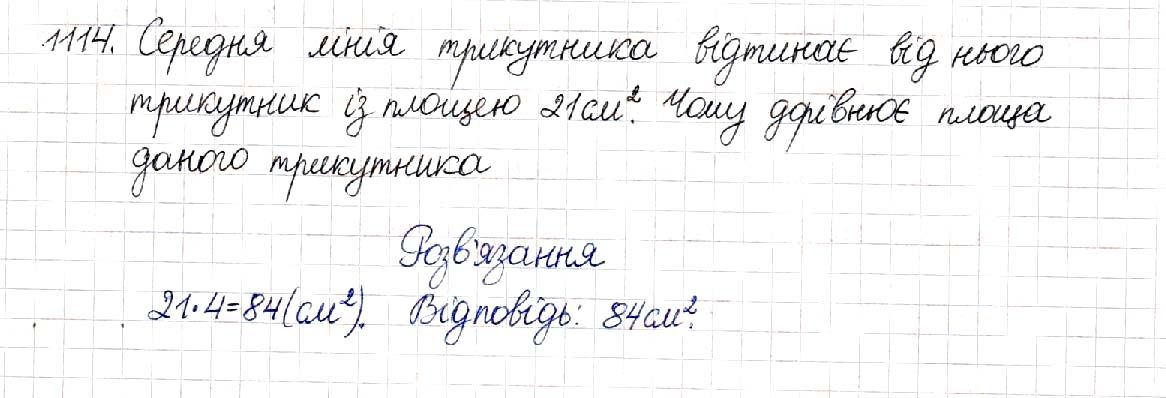 1114. Середня лінія трикутника відтинає від нього
трикутник із площею 21см². Чому дорівнює площа
даного трикутника
Розв'язання
21·4=84(см²). Відповідь: 84см².